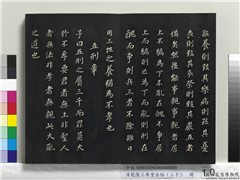 敬養則致其樂病則致其憂
喪則致其哀祭則致其嚴五者
備矣然後能事親事親者居
上不驕為下不亂在醜不爭居
上而驕則亡為下而亂則刑在
醜而爭則兵三者不除雖日
用三牲之養猶為不孝也
五刑章
子曰五刑之屬三千而罪莫大
於不孝要君者無上非聖人
者無法非孝者無親此大亂
之道也
清乾隆三希堂法帖(三十) 冊